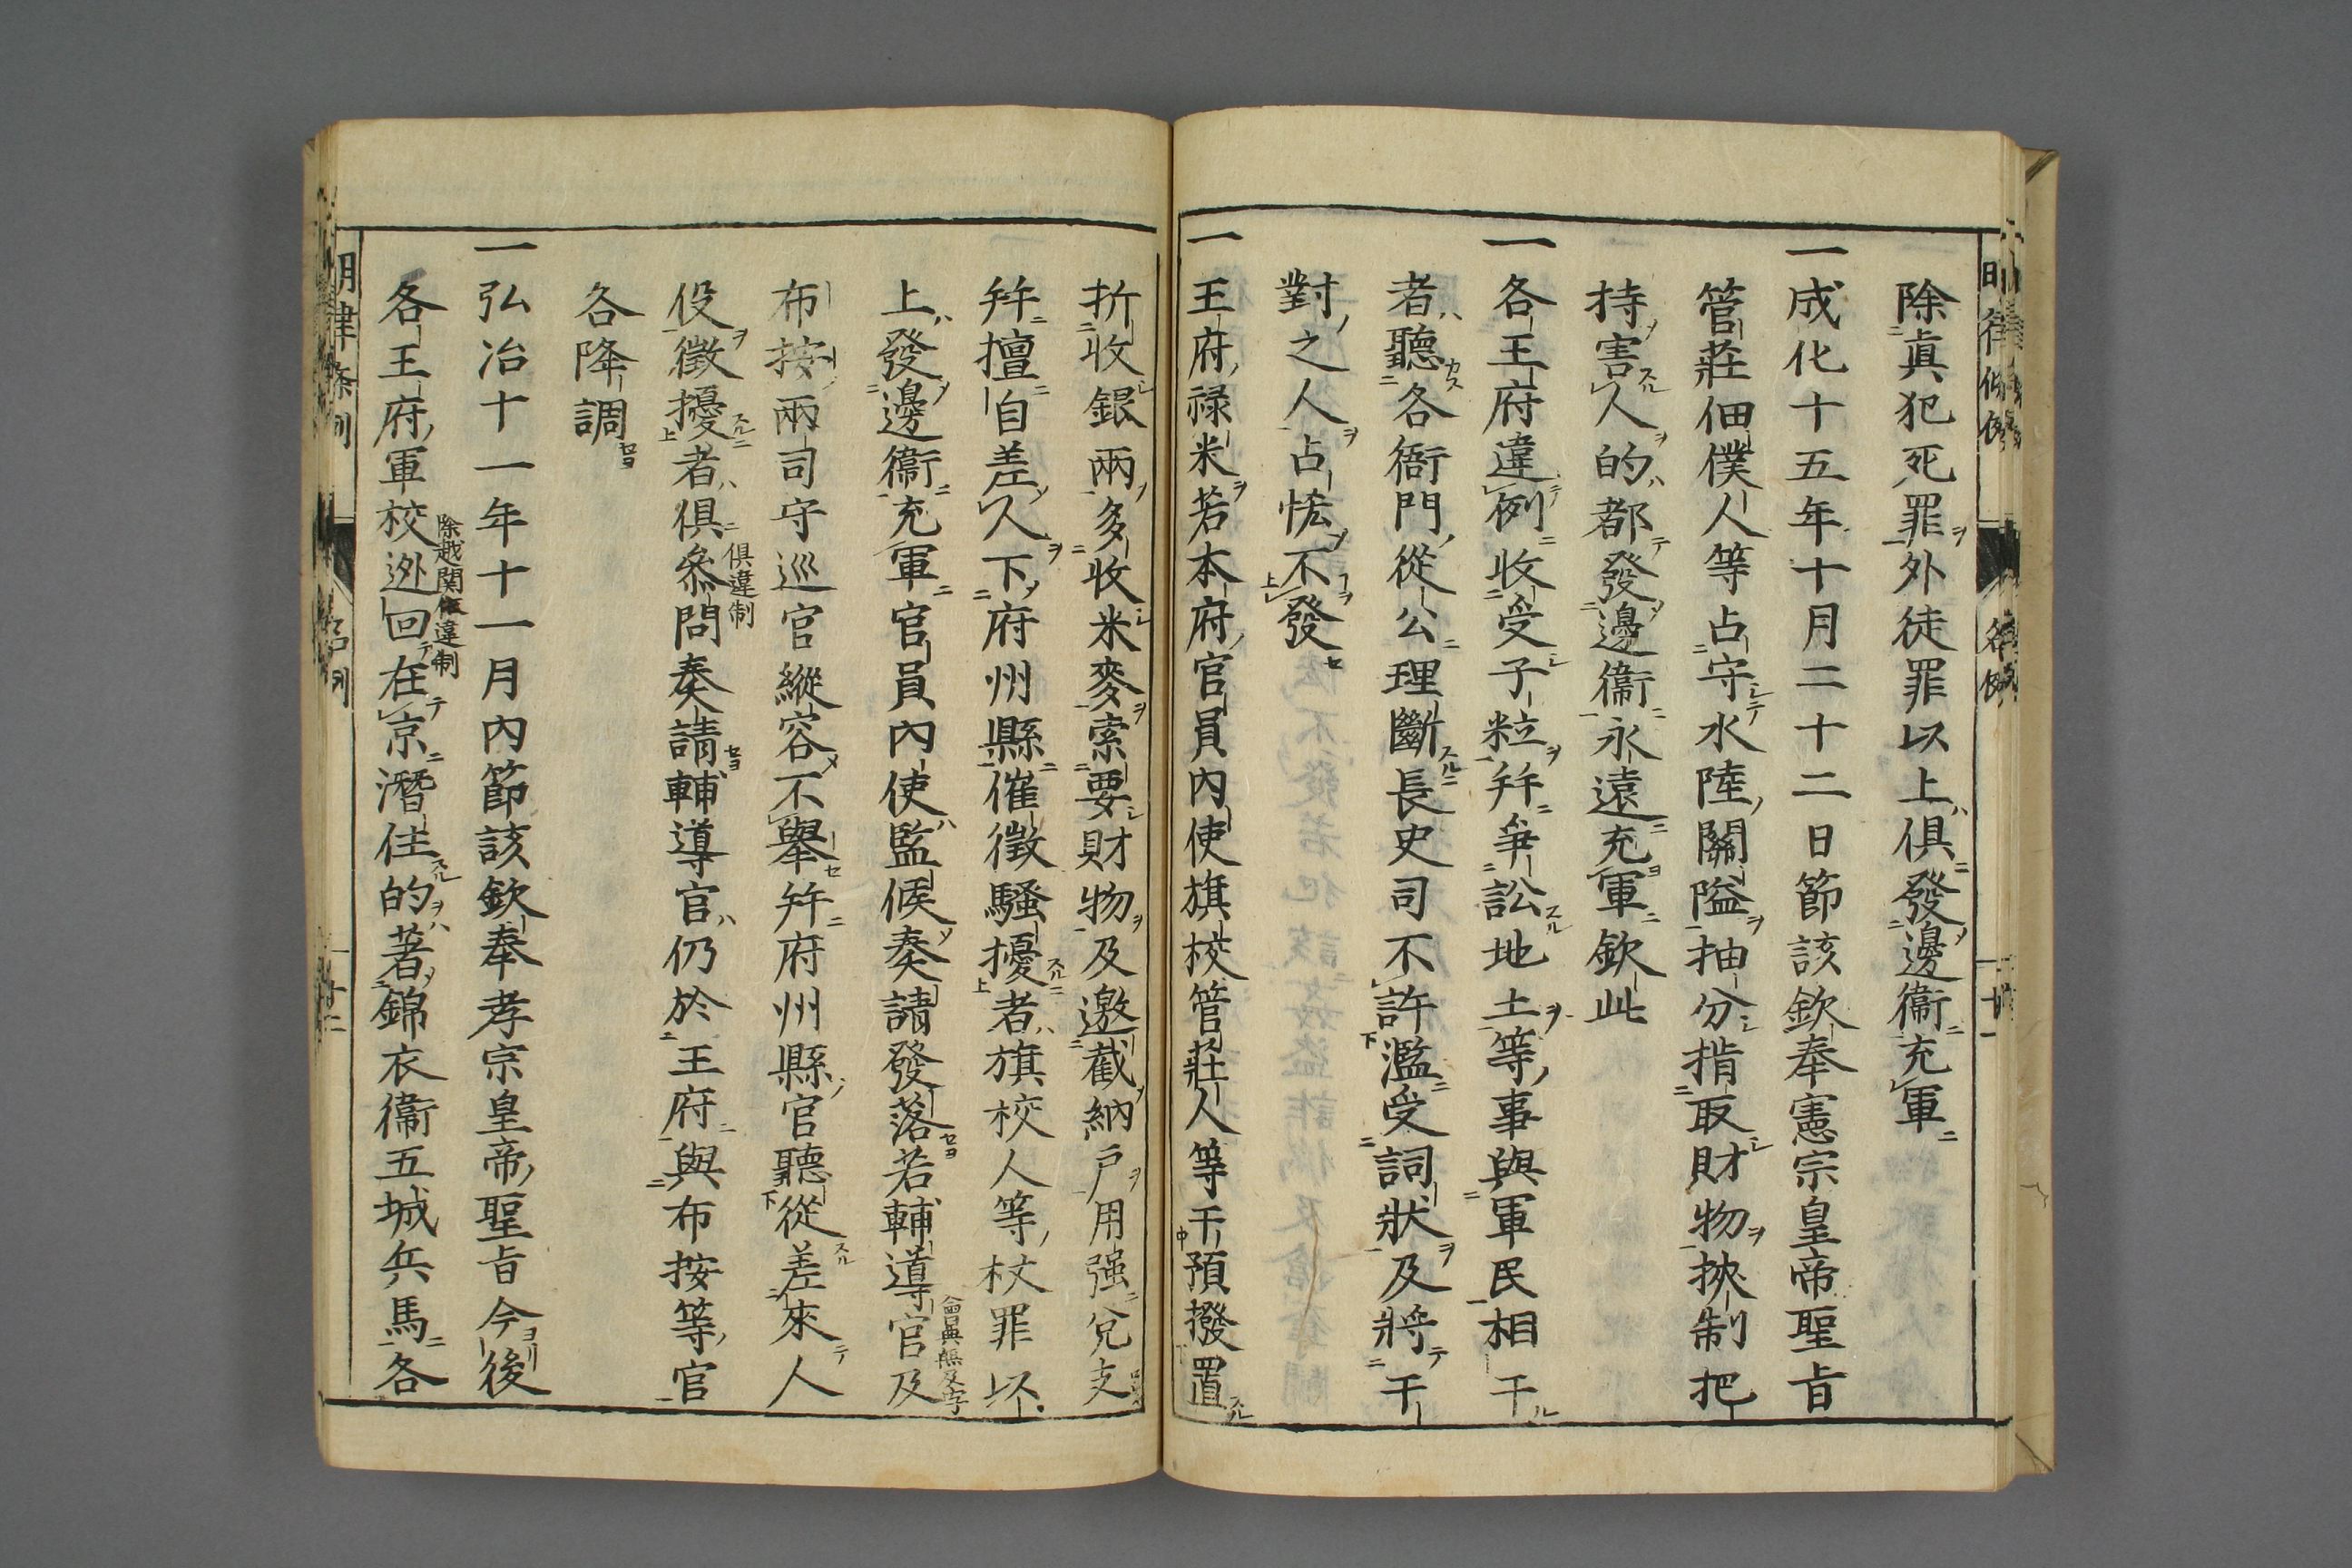 除眞犯死罪外徒罪以上俱發邊衞充軍
一成化十五年十月二十二日節該欽奉憲宗皇帝聖旨
管莊佃僕人等占守水陸關隘抽分掯取財物挾制把
持害人的都發邊衞永遠充軍欽此
一各王府違例收受子粒幷爭訟地土等事與軍民相干
者聽各衙門從公理斷長史司不許濫受詞狀及將干
對之人占恡不發
一王府祿米若本府官員內使旗校管莊人等干預撥置
折收銀兩多收米麥索要財物及邀截納戶用强兌支
幷擅自差人下府州縣催徵騷擾者旗校人等杖罪以
上發邊衞充軍官員內使監候奏請發落若輔導官及
布按兩司守巡官縱容不舉幷府州縣官聽從差來人
役徵擾者俱叅問奏請輔導官仍於王府與布按等官
俱違制
各降調
一弘治十一年十一月內節該欽奉孝宗皇帝聖旨今後
各王府軍校迯回在京潛住的著錦衣衞五城兵馬各
除越関依違制